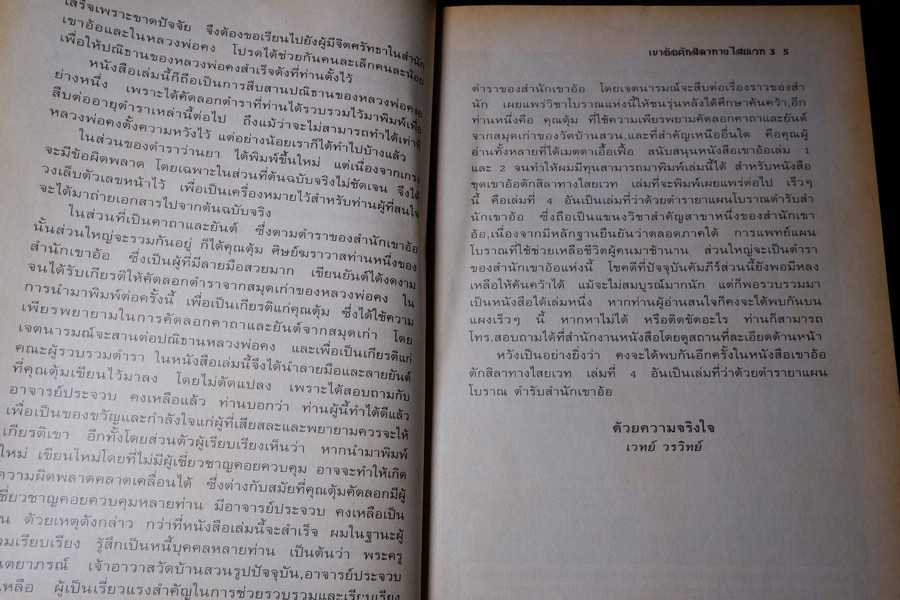 เสร็จเพราะขาดปัจจัย จึงต้องขอเรียนไปยังผู้มีจิตศรัทธาในสำนัก
เขาอ้อและในหลวงพ่อคง โปรดได้ช่วยกันคนละเล็กคนละน้อย
เพื่อให้ปณิธานของหลวงพ่อคงสำเร็จดังที่ท่านตั้งไว้
หนังสือเล่มนี้ก็ถือเป็นการสืบสานปณิธานของหลวงพ่อคง
อย่างหนึ่ง เพราะได้คัดลอกตำราที่ท่านได้รวบรวมไว้มาพิมพ์เพื่อ
สืบต่ออายุตำราเหล่านี้ต่อไป ถึงแม้ว่าจะไม่สามารถทำได้เท่าที่
หลวงพ่อคงตั้งความหวังไว้ แต่อย่างน้อยเราก็ได้ทำไปบ้างแล้ว
ในส่วนของตำราว่านยา ได้พิมพ์ขึ้นใหม่ แต่เนื่องจากเกรง
จะมีข้อผิดพลาด โดยเฉพาะในส่วนที่ต้นฉบับจริงไม่ชัดเจน จึงได้
วงเล็บตัวเลขหน้าไว้ เพื่อเป็นเครื่องหมายไว้สำหรับท่านผู้ที่สนใจ
จะได้มาถ่ายเอกสารไปจากต้นฉบับจริง
ในส่วนที่เป็นคาถาและยันต์ ซึ่งตามตำราของสำนักเขาอ้อ
นั้นส่วนใหญ่จะรวมกันอยู่ ก็ได้คุณตุ้ม ศิษย์ฆราวาสท่านหนึ่งของ
สำนักเขาอ้อ ซึ่งเป็นผู้ที่มีลายมือสวยมาก เขียนยันต์ได้งดงาม
จนได้รับเกียรติให้คัดลอกตำราจากสมุดเก่าของหลวงพ่อคง ใน
การนำมาพิมพ์ต่อครั้งนี้ เพื่อเป็นเกียรติแก่คุณตุ้ม ซึ่งได้ใช้ความ
เพียรพยายามในการคัดลอกคาถาและยันต์จากสมุดเก่า โดย
เจตนารมณ์จะสานต่อปณิธานหลวงพ่อคง และเพื่อเป็นเกียรติแก่
คณะผู้รวบรวมตำรา ในหนังสือเล่มนี้จึงได้นำลายมือและลายยันต์
ที่คุณตุ้มเขียนไว้มาลง โดยไม่ดัดแปลง เพราะได้สอบถามกับ
อาจารย์ประจวบ คงเหลือแล้ว ท่านบอกว่า ท่านผู้นี้ทำได้ดีแล้ว
เพื่อเป็นของขวัญและกำลังใจแก่ผู้ที่เสียสละและพยายามควรจะให้
เกียรติเขา อีกทั้งโดยส่วนตัวผู้เรียบเรียงเห็นว่า หากนำมาพิมพ์
ใหม่ เขียนใหม่โดยที่ไม่มีผู้เชี่ยวชาญคอยควบคุม อาจจะทำให้เกิด
ความผิดพลาดคลาดเคลื่อนได้ ซึ่งต่างกับสมัยที่คุณตุ้มคัดลอกมีผู้
เชี่ยวชาญคอยควบคุมหลายท่าน มีอาจารย์ประจวบ คงเหลือเป็น
ต้น ด้วยเหตุดังกล่าว กว่าที่หนังสือเล่มนี้จะสำเร็จ ผมในฐานะผู้
รวมเรียบเรียง รู้สึกเป็นหนี้บุคคลหลายท่าน เป็นต้นว่า พระครู
เจ้าอาวาสวัดบ้านสวนรูปปัจจุบัน,อาจารย์ประจวบ
คงเหลือ ผู้เป็นเรี่ยวแรงสำคัญในการช่วยรวบรวมและเรียบเรียง
เขาอ้อตักสิลาทางไสยเวท 3 5
ตำราของสำนักเขาอ้อ โดยเจตนารมณ์จะสืบต่อเรื่องราวของสำ
นัก เผยแพร่วิชาโบราณแห่งนี้ให้ชนรุ่นหลังได้ศึกษาค้นคว้า,อีก
ท่านหนึ่งคือ คุณตุ้ม ที่ใช้ความเพียรพยามคัดลอกคาถาและยันต์
จากสมุดเก่าของวัดบ้านสวน,และที่สำคัญเหนืออื่นใด คือคุณผู้
อ่านทั้งหลายที่ได้เมตตาเอื้อเฟื้อ สนับสนุนหนังสือเขาอ้อเล่ม 1
และ 2 จนทำให้ผมมีทุนสามารถมาพิมพ์เล่มนี้ได้ สำหรับหนังสือ
ชุดเขาอ้อตักสิลาทางไสยเวท เล่มที่จะพิมพ์เผยแพร่ต่อไป เร็วๆ
นี้ คือเล่มที่ 4 อันเป็นเล่มที่ว่าด้วยตำรายาแผนโบราณตำรับสำ
นักเขาอ้อ ซึ่งถือเป็นแขนงวิชาสำคัญสาขาหนึ่งของสำนักเขา
อ้อ,เนื่องจากมีหลักฐานยืนยันว่าตลอดภาคใต้ การแพทย์แผน
โบราณที่ใช้ช่วยเหลือชีวิตผู้คนมาช้านาน ส่วนใหญ่จะเป็นตำรา
ของสำนักเขาอ้อแห่งนี้ โชคดีที่ปัจจุบันคัมภีร์ส่วนนี้ยังพอมีหลง
เหลือให้ค้นคว้าได้ แม้จะไม่สมบูรณ์มากนัก แต่ก็พอรวบรวมมา
เป็นหนังสือได้เล่มหนึ่ง หากท่านผู้อ่านสนใจก็คงจะได้พบกันบน
แผงเร็วๆ นี้ หากหาไม่ได้ หรือติดขัดอะไร ท่านก็สามารถ
โทร.สอบถามได้ที่สำนักงานหนังสือโดยดูสถานที่ละเอียดด้านหน้า
หวังเป็นอย่างยิ่งว่า คงจะได้พบกันอีกครั้งในหนังสือเขาอ้อ
ตักสิลาทางไสยเวท เล่มที่ 4 อันเป็นเล่มที่ว่าด้วยตำรายาแผน
โบราณ ตำรับสำนักเขาอ้อ
ด้วยความจริงใจ
เวทย์ วรวิทย์